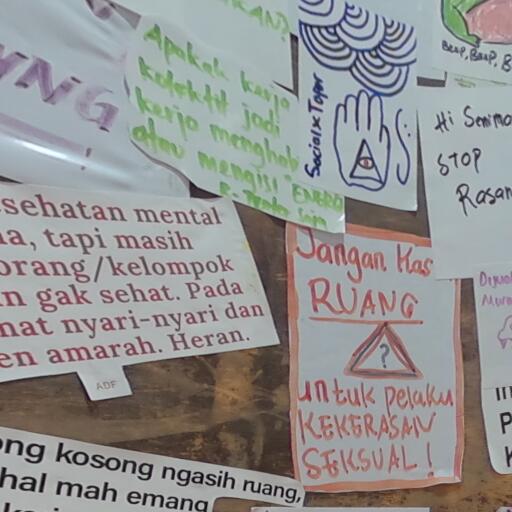 Apakah kerja
kolektif jadi
kerja menghab
atau mengisi "ENERG
Social x Toper
BRAP, BRAP, B
Hi Semmo
STOP
Rasan
sehatan mental
a, tapi masih
orang/kelompok
n gak sehat. Pada
mat nyari-nyari dan
en amarah. Heran.
ADF
Jangan Kas
RUANG
?
untuk pelaku
KEKERASAN
SEKSUAL!
ong kosong ngasih ruang,
hal mah emang